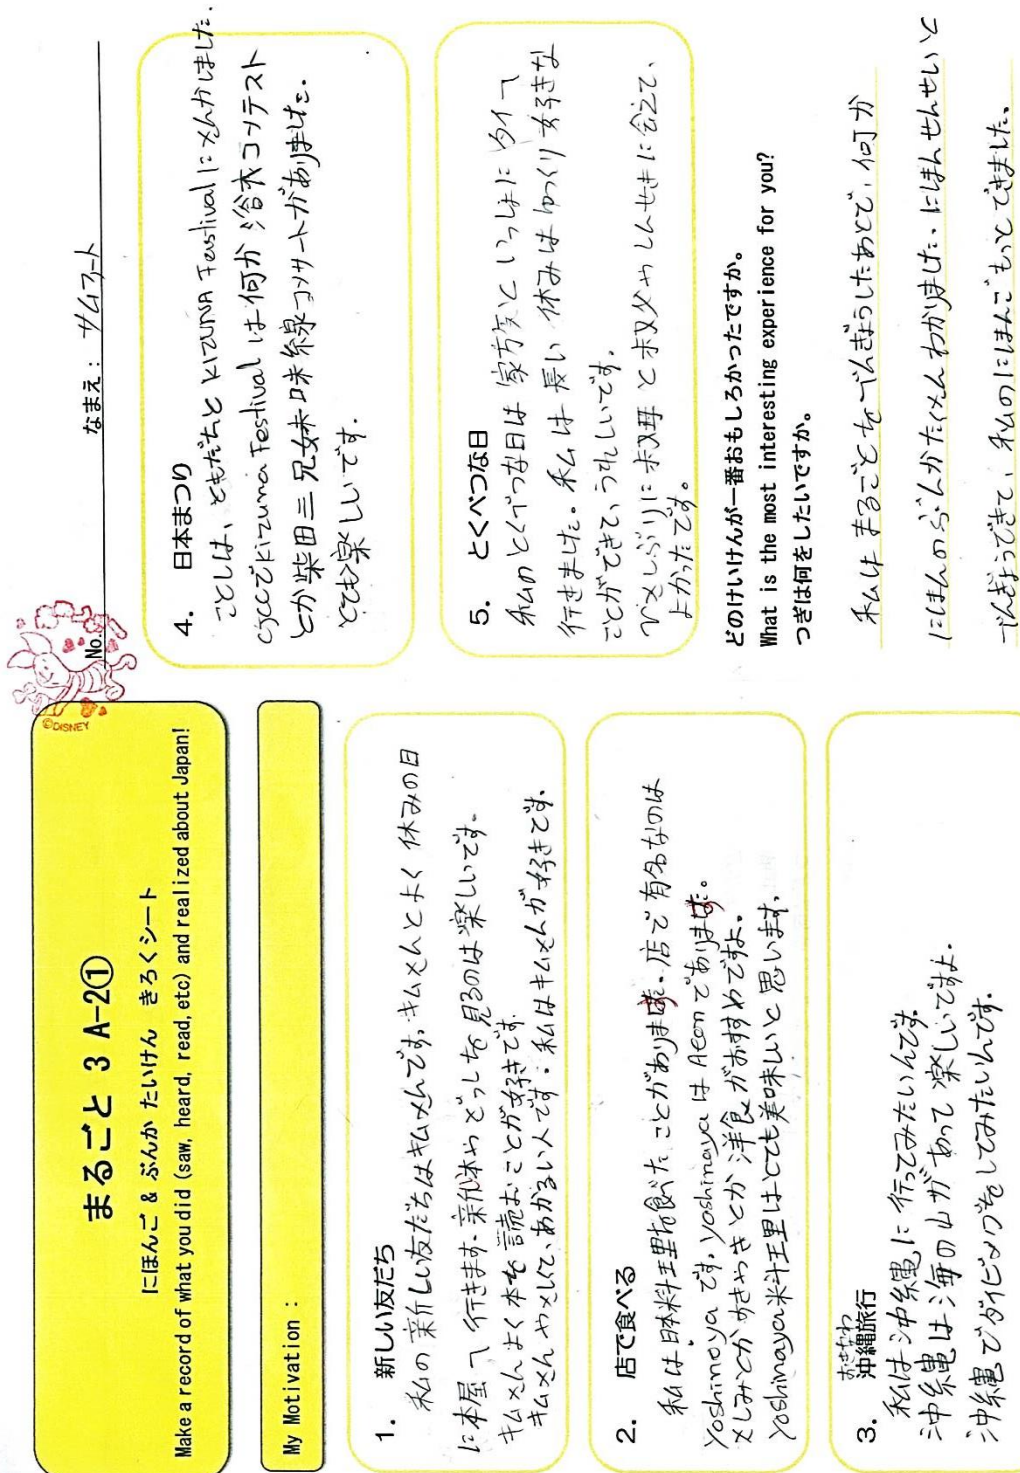 まるごと 3 A-2①
にほんご & ぶんか たいけん きろくシート
Make a record of what you did (saw, heard, read, etc) and realized about Japan!
My Motivation :
1. 新しい友だち
私の新しい友だちはキムさんです。キムさんとよく休みの日
に本屋へ行きます。新しい本やざっしを見るのは楽しいです。
キムさんよく本を読むことが好きです。
キムさんやさしくて、あかるい人です。私はキムさんが好きです。
2. 店で食べる
私は日本料理を食べたことがあります。店で有名なのは
Yoshinoya です。Yoshinoya は Aeon であります。
さしみとかすきやきとか洋食がおすすめですよ。
Yoshinoya 料理はとても美味しいと思います。
おきなわ
3. 沖縄旅行
私は沖縄に行ってみたいんです。
沖縄は海の山があって楽しいですよ。
沖縄でダイビングをしてみたいんです。
©DISNEY
No.
なまえ: サムアート
4. 日本まつり
ことしは、ともだちと KIZUNA Festival にさんかしました。
CJCCで Kizuna Festival は何か 浴衣コンテスト
とか柴田三兄妹味線コンサートがありました。
とても楽しいです。
5. とくべつな日
私のとくべつな日は 家族といっしょにタイへ
行きました。私は長い 休みはゆっくり 好きな
ことができて、うれしいです。
ひさしぶりに 叔母と叔父やしんせきに会えて、
よかったです。
どのけいけんが一番おもしろかったですか。
What is the most interesting experience for you?
つぎは何をしたいですか。
私はまるごとをべんぎょうしたあとで、何か
にほんのぶんかたくさんわかりました。にほんせんせいと
べんぎょうできて、私のにほんごもっとできました。